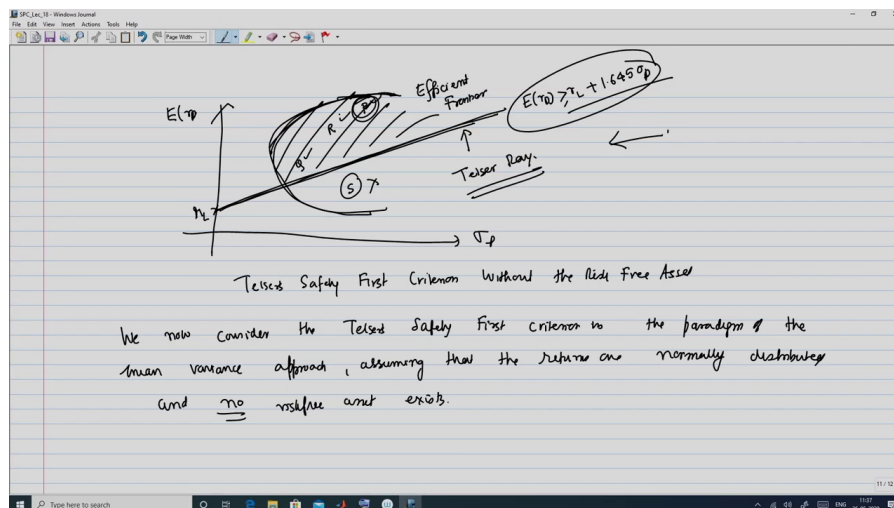 SPC_Lec_18 - Windows Journal
File Edit View Insert Actions Tools Help
Page Width
E(r
Efficient
Frontier
E(rp) ≥ rL + 1.645σp
P
R
Q
S
Telser Ray.
rL
σp
Telser's Safety First Criterion Without the Risk Free Asset
We now consider the Telser's Safety First criterion in the paradigm of the
mean variance approach, assuming that the returns are normally distributed
and no riskfree asset exists.
11 / 12
Type here to search
ENG
11:37